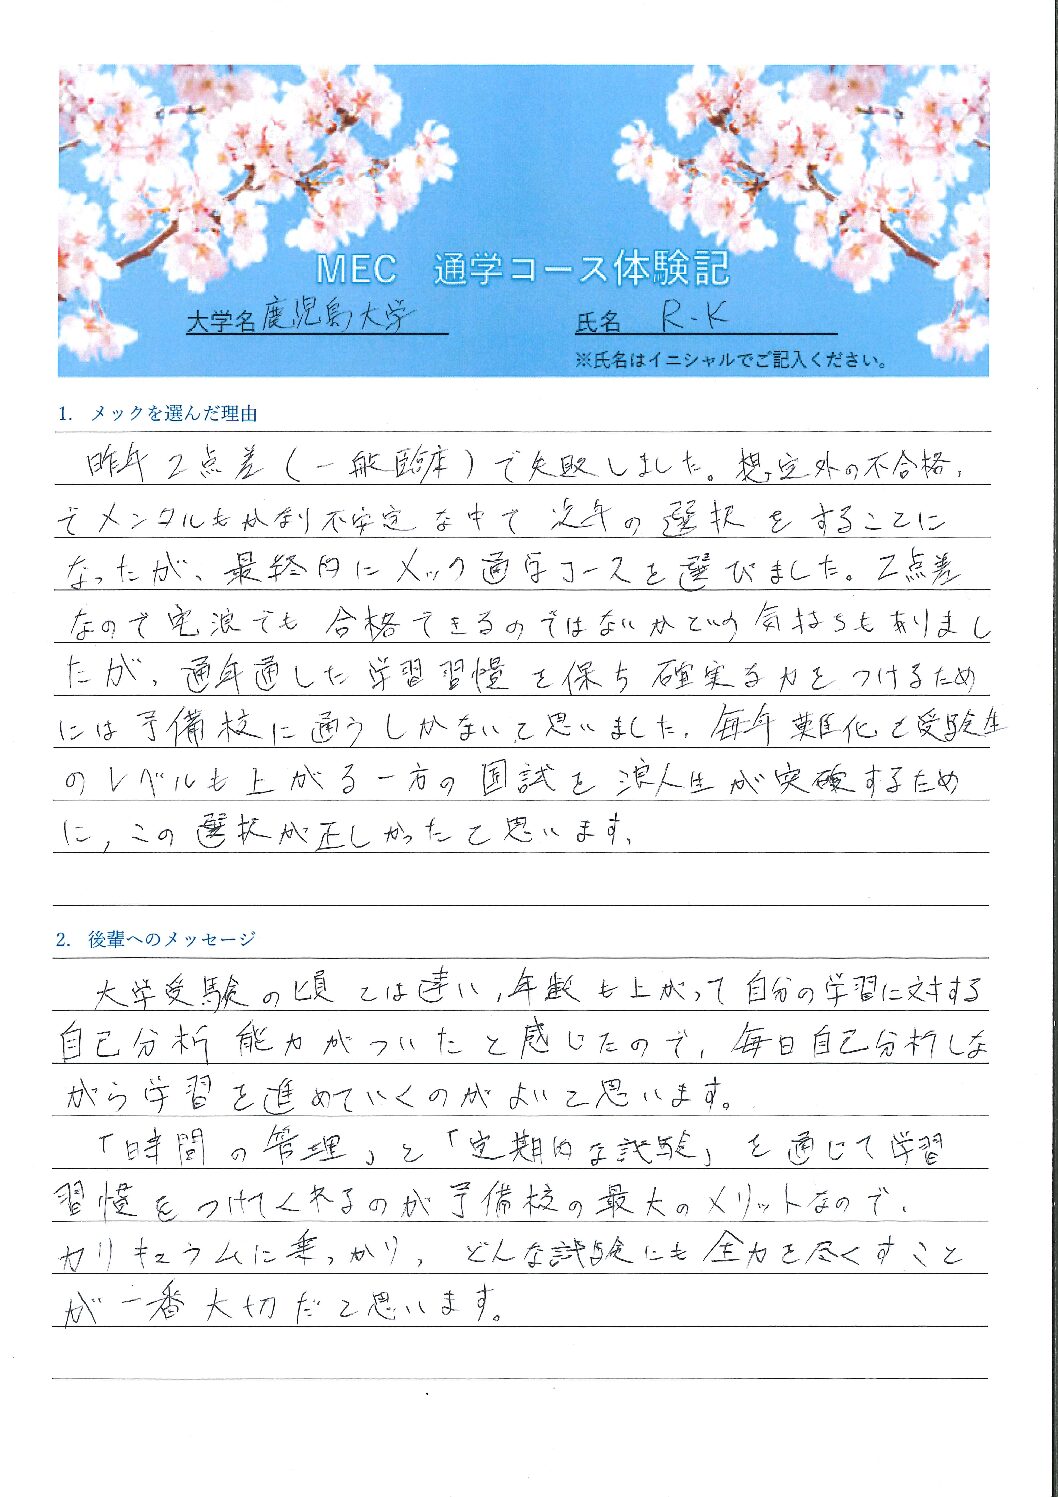 MEC 通学コース体験記
大学名 鹿児島大学 氏名 R.K
※氏名はイニシャルでご記入ください。
1. メックを選んだ理由
昨年2点差(一般臨床)で失敗しました。想定外の不合格、
でメンタルもかなり不安定な中で次年の選択をすることに
なったが、最終的にメック通学コースを選びました。2点差
なので宅浪でも合格できるのではないかという気持ちもありまし
たが、通年通した学習習慣を保ち確実な力をつけるため
には予備校に通うしかないと思いました。毎年難化と受験生
のレベルも上がる一方の国試を浪人生が突破するため
に,この選択が正しかったと思います。
2. 後輩へのメッセージ
大学受験の頃とは違い,年数も上がって自分の学習に対する
自己分析能力がついたと感じたので、毎日自己分析しな
がら学習を進めていくのがよいと思います。
「時間の管理」と「定期的な試験」を通じて学習
習慣をつけてくれるのが予備校の最大のメリットなので、
カリキュラムに乗っかり,どんな試験にも全力を尽くすこと
が一番大切だと思います。